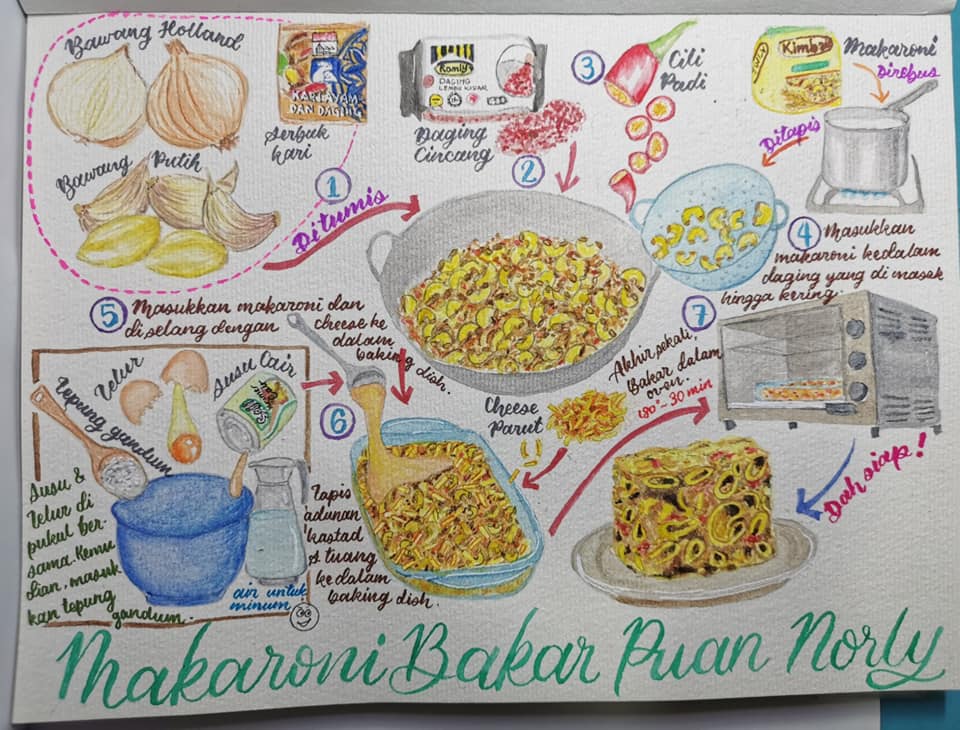 Bawang Holland
Bawang Putih
KARI AYAM
DAN DAGING
Serbuk
Kari
1
Ditumis
Ramly
DAGING
LEMBU KISAR
Daging
Cincang
2
3
Cili
Padi
Kimball
Makaroni
Direbus
Ditapis
4 Masukkan
makaroni kedalam
daging yang di masak
hingga kering.
5 Masukkan makaroni dan
di selang dengan cheese ke
dalam
baking dish.
Tepung gandum
Telur
Susu Cair
Susu &
Telur di
pukul ber-
sama. Kemu
dian, masuk
kan tepung
gandum.
air untuk
minum
6
Tapis
adunan
kastad
& tuang
ke dalam
baking dish.
Cheese
Parut
7
Akhir sekali,
Bakar dalam
oven.
180° ~ 30 min
Dah siap!
Makaroni Bakar Puan Norly